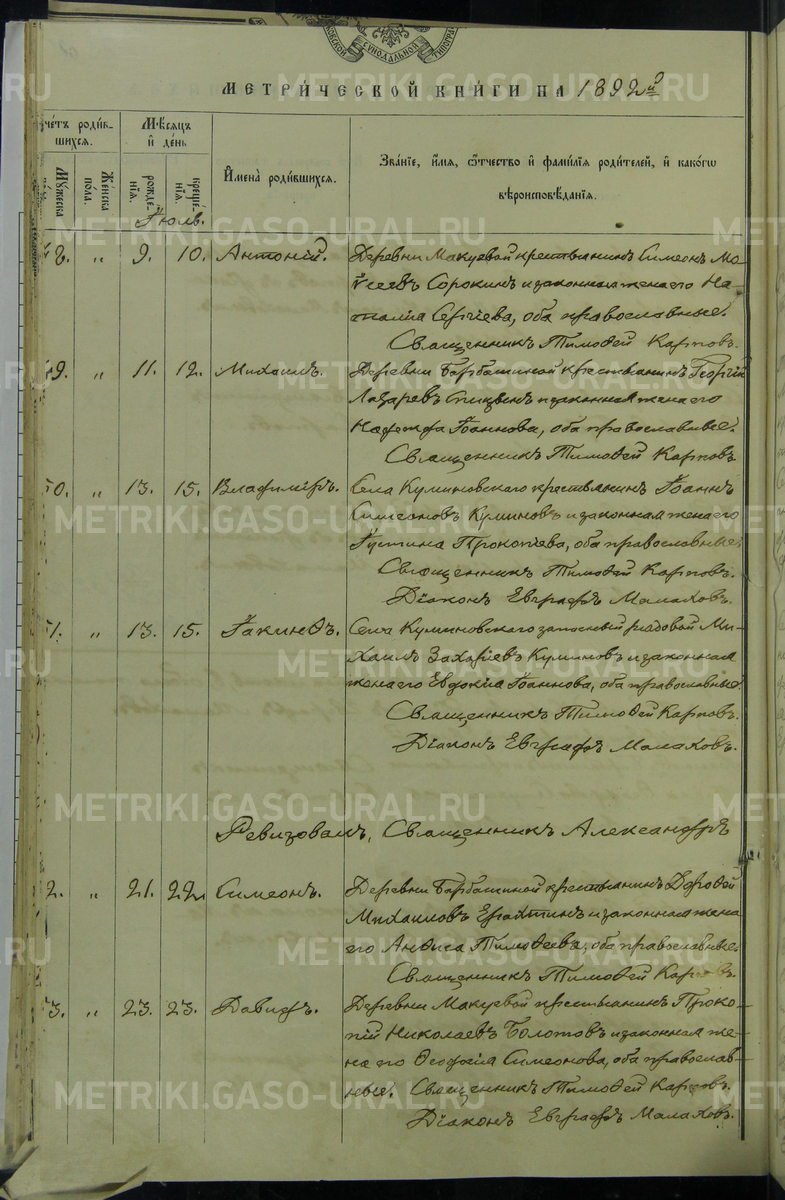 СѴНОДАЛЬНОЙ
МЕТРИ́ЧЕСКОЙ КНИ́ГИ НА 1892й
METRIKI.GASO-URAL.RU
роди́в-
шихся.
Мѣсяцъ
и҆ де́нь
Мꙋжеска
Же́нска
по́ла.
рожде́-
нїѧ.
креще́-
нїѧ.
И҆мена̀ роди́вшихся.
Зва́нїе, и҆́мѧ, ѻ҆́тчество и҆ фами́лїѧ роди́телей, и҆ како́гѡ
вѣроисповѣ́данїѧ.
Іюль.
8. „ 9. 10. Антоній. Деревни Макуевой крестьянинъ Симеонъ Мо-
ѵсеевъ Сорокинъ и законная жена его На-
талія Сергіева, оба православные.
Священникъ Тимоѳей Карповъ.
49. „ 11. 12. Михаилъ. Деревни Барбашиной крестьянинъ Георгій
Лазаревъ Спицынъ и законная жена его
Надежда Іоаннова, оба православные.
Священникъ Тимоѳей Карповъ.
50. „ 13. 15. Владиміръ. Села Куминовскаго крестьянинъ Іоаннъ
Симеоновъ Куминовъ и законная жена его
Іустина Прокопіева, оба православные.
Священникъ Тимоѳей Карповъ.
Діаконъ Евграфъ Малаховъ.
51. „ 13. 15. Іакинѳъ. Села Куминовскаго запасный рядовой Ми-
хаилъ Захаріевъ Куминовъ и законная
жена его Евдокія Іоаннова, оба православные.
Священникъ Тимоѳей Карповъ.
Діаконъ Евграфъ Малаховъ.
Ревизовалъ, Священникъ Александръ
2. „ 21. 22. Симеонъ. Деревни Барбашиной крестьянинъ Дороѳей
Михаиловъ и законная жена
его Анѳиса Тимоѳеева, оба православные.
Священникъ Тимоѳей Карповъ.
53. „ 23. 23. Давидъ. Деревни Макуевой крестьянинъ Проко-
пій Николаевъ Болотовъ и законная же-
на его Ѳеодосія Симеонова, оба православ-
ные. Священникъ Тимоѳей Карповъ.
Діаконъ Евграфъ Малаховъ.